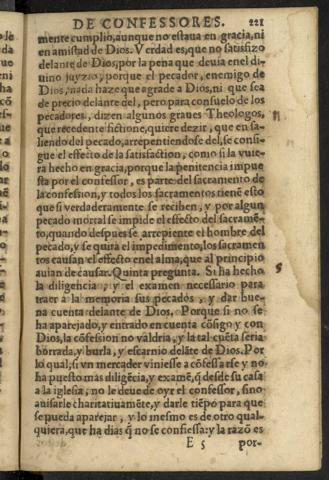 DE CONFESSORES. 221
mente cumplio, aunque no estaua en gracia, ni
en amistad de Dios. Verdad es, que no satisfizo
delante de Dios, por la pena que deuia en el di-
uino juyzio, porque el pecador, enemigo de
Dios, nada haze que agrade a Dios, ni que sea
de precio delante del, pero para consuelo de los
pecadores, dizen algunos graues Theologos,
que recedente fictione, quiere dezir, que en sa-
liendo del pecado, arrepentiendose del, se consi-
gue el effecto de la satisfaction, como si la vuie-
ra hecho en gracia, porque la penitencia impue
sta por el confessor, es parte del sacramento de
la confession, y todos los sacramentos tienẽ esto
que si verdaderamente se reciben, y por algun
pecado mortal se impide el effecto del sacramẽ-
to, quando despues se arrepiente el hombre del
pecado, y se quita el impedimento, los sacramen
tos causan el effecto en el alma, que al principio
auian de causar. Quinta pregunta. Si ha hecho
la diligencia, y el examen necessario para
traer a la memoria sus pecados, y dar bue-
na cuenta delante de Dios. Porque si no se
ha aparejado, y entrado en cuenta cõsigo y con
Dios, la cõfession no valdria, y la tal cuẽta seria
borrada, y burla, y escarnio delãte de Dios. Por
lo qual, si vn mercader viniesse a cõfessarse y no
ha puesto mas diligẽcia, y examẽ, q̃ desde su casa
a la iglesia, no le deue de oyr el confessor, sino
auisarle charitatiuamẽte, y darle tiẽpo para que
se pueda aparejar, y lo mesmo es de otro qual-
quiera, que ha dias q̃ no se confiessa: y la razõ es
E 5 por-
5